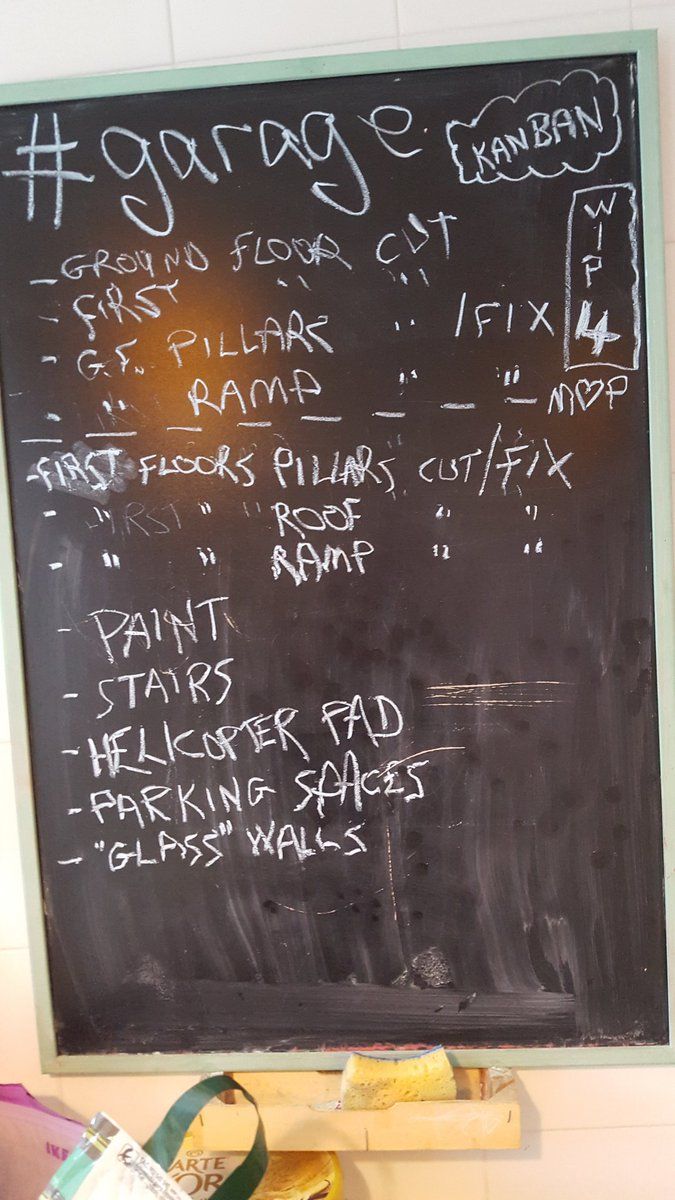 #garage
KANBAN
WIP
4
- GROUND FLOOR CUT
- FIRST " "
- G.F. PILLARS " /FIX
- " RAMP " "
M♡P
- FIRST FLOORS PILLARS CUT/FIX
- " FIRST " ROOF " "
- " " RAMP " "
- PAINT
- STAIRS
- HELICOPTER PAD
- PARKING SPACES
- "GLASS" WALLS
IKE
ARTE